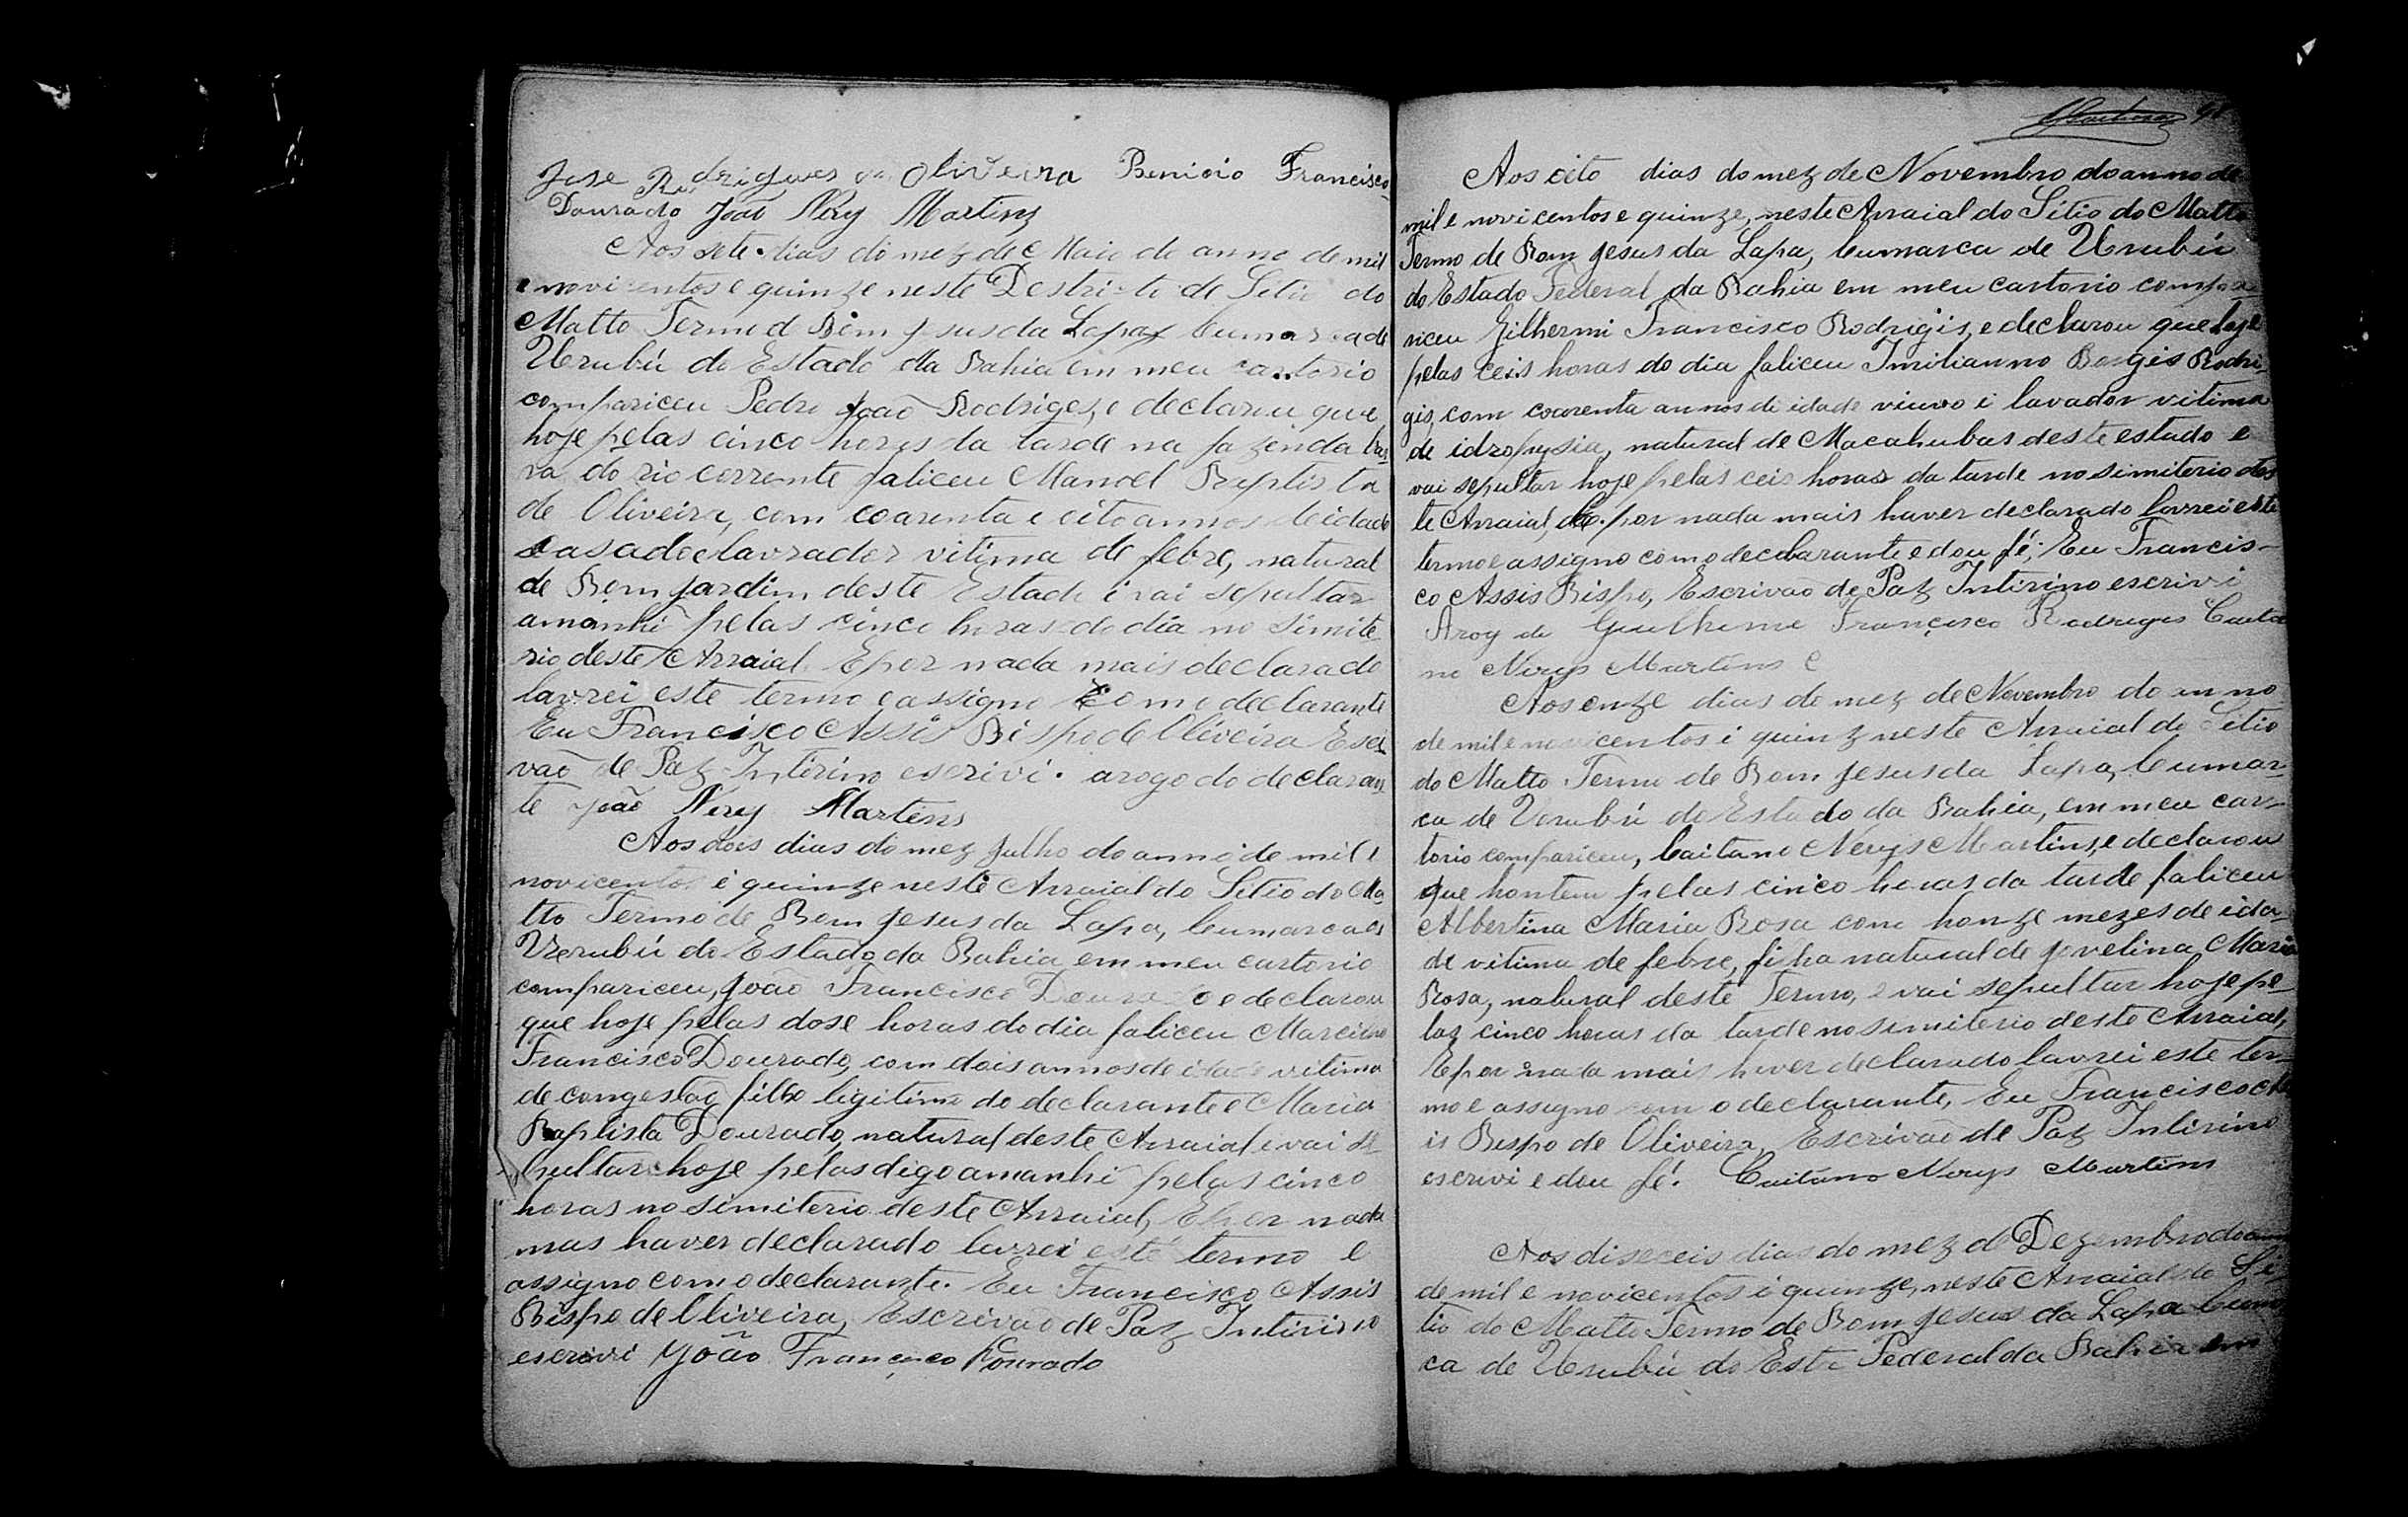 Jose Rodrigues de Oliveira Benicio Francisco
Dourado João Nery Martins
Aos sete dias do mez de Maio do anno de mil
e novicentos e quinze neste Destricto de Sitio do
Matto Termo d Bom Jesus da Lapa Cumarca de
Urubú do Estado da Bahia em meu cartorio
compariceu Pedro João Rodriges, e declarou que
hoje pelas cinco horas da tarde na fazenda Bar
ra do rio corrente faliceu Manoel Baptista
de Oliveira, com coarenta e oito annos de idade
casado e lavrador vitima de febre, natural
de Bom jardim deste Estado i vai sepultar
amanhi pelas cinco horas do dia no simite
rio deste Arraial. E por nada mais declarado
lavrei este termo e assigno como declarante
Eu Francisco Assis Bispo de Oliveira Escri
vaõ de Paz Intirino escrivi. arogo do declaran
te João Nery Martins
Aos dois dias do mez Julho do anno de mil e
novicentos i quinze neste Arraial do Sitio do Ma
tto Termo de Bom Jesus da Lapa, Cumarca de
Urubú do Estado da Bahia em meu cartorio
compariceu, João Francisco Dourado e declarou
que hoje pelas dose horas do dia faliceu
Francisco Dourado, com dois annos de idade vitima
de congestaõ filho ligitimo do declarante e Maria
Baptista Dourado, natural deste Arraial e vai se
pultar hoje pelas digo amanhi pelas cinco
horas no simiterio deste Arraial, E por nada
mas haver declarado lavrei este termo e
assigno com o declarante. Eu Francisco Assis
Bispo de Oliveira, Escrivaõ de Paz Intirino
escrivi João Francisco Dourado
Aos oito dias do mez de Novembro do anno de
mil e novicentos e quinze, neste Arraial do Sitio do Matto
Termo de Bom Jesus da Lapa, Cumarca de Urubú
do Estado Federal da Bahia em meu cartorio compa
riceu Gilhermi Francisco Rodrigis, e declarou que hoje
pelas ceis horas do dia faliceu Imilianno Borgis Rodri
gis, com coarenta annos de idade viuvo i lavador vitima
de idropysia, natural de Macahubas deste estado e
vai sepultar hoje pelas ceis horas da tarde no simiterio des
te Arraial, por nada mais haver declarado lavrei este
termo e assigno com o declarante e dou fé; Eu Francis-
co Assis Bispo, Escrivaõ de Paz Intirino escrivi
Arog de Guilherme Francisco Rodrigues Caita
no Nerys Martins
Aos onze dias do mez de Novembro do anno
de mil e novicentos i quinz neste Arraial do Sitio
do Matto Termo de Bom Jesus da Lapa, Cumar-
ca de Urubú do Estado da Bahia, em meu car-
torio compariceu, Caitano Nerys Martins, e declarou
que hontem pelas cinco horas da tarde faliceu
Albertina Maria Rosa com honze mezes de ida-
de vitima de febre, filha natural de Jovelina Maria
Rosa, natural deste Termo, e vai sepultar hoje pe-
las cinco horas da tarde no simiterio deste Arraial,
E por nada mais haver declarado lavrei este ter-
mo e assigno com o declarante, Eu Francisco
is Bispo de Oliveira, Escrivaõ de Paz Intirino
escrivi e dou fé. Caitano Nerys Martins
Aos diseceis dias do mez d Dezembro do anno
de mil e novicentos i quinze, neste Arraial do Si
tio do Matto Termo de Bom Jesus da Lapa Cumar
ca de Urubú do Federal da Bahia em